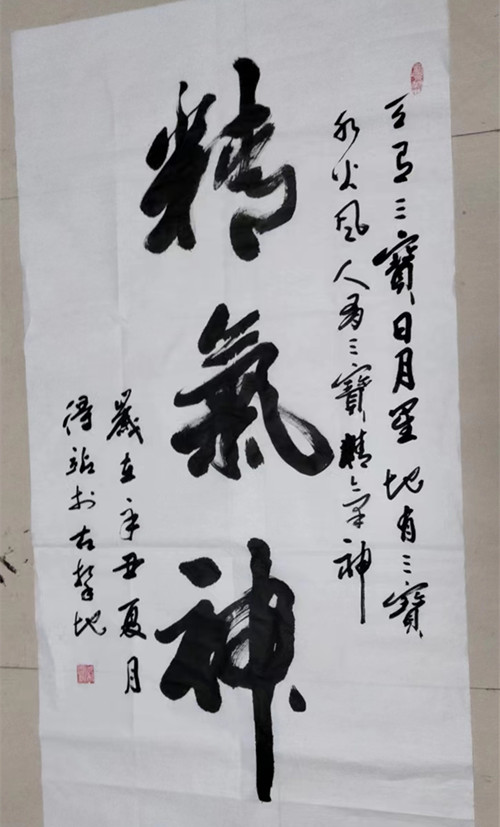 天有三寶日月星地有三寶
水火風人有三寶精氣神
精氣神
歲在辛丑夏月
得站於古黎地